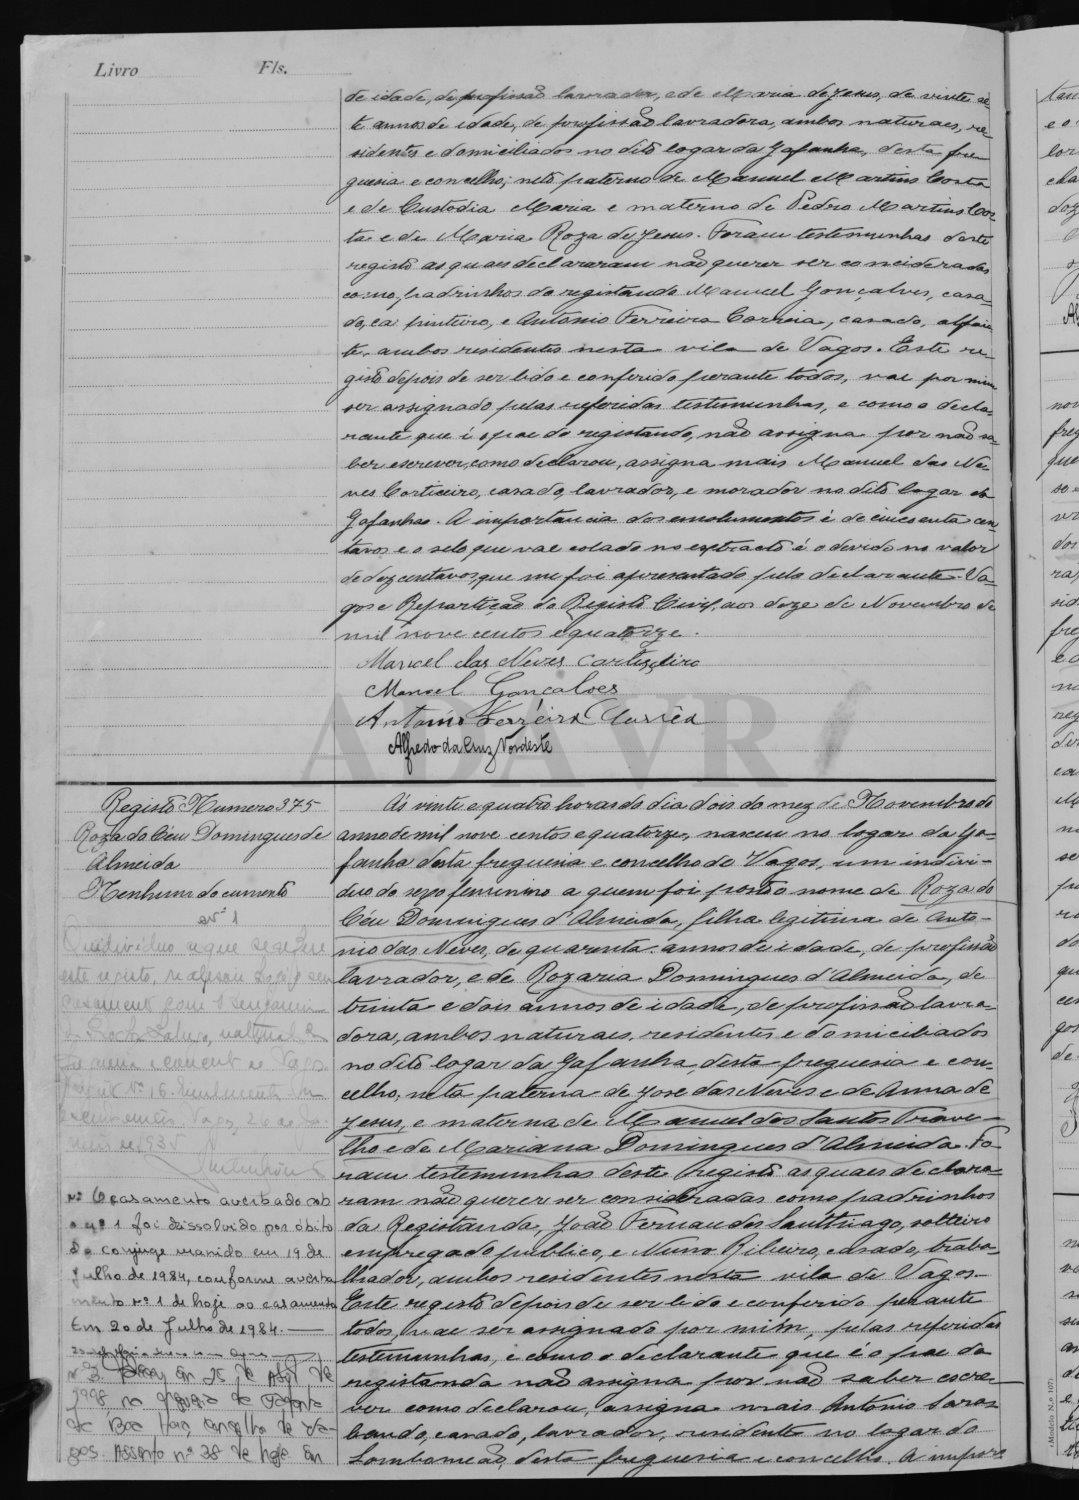 Livro Fls.
de idade, de profissão lavrador, e de Maria de Jesus, de vinte se-
te annos de idade, de profissão lavradora, ambos naturaes, re-
sidentes e domiciliados no dito logar da Gafanha, desta fre-
guesia e concelho; neto paterno de Manuel Martins Costa
e de Custodia Maria e materno de Pedro Martins Cos-
ta e de Maria Roza de Jesus. Foram testemunhas deste
registo as quaes declararam não querer ser consideradas
como padrinhos do registando Manuel Gonçalves, casa-
do, carpinteiro, e Antonio Ferreira Correia, casado, alfaia-
te, ambos residentes nesta vila de Vagos. Este re-
gisto depois de ser lido e conferido perante todos, vae por mim
ser assignado pelas referidas testemunhas, e como o decla-
rante que é o pae do registando, não assigna por não sa-
ber escrever, como declarou, assigna mais Manuel das Ne-
ves Corticeiro, casado, lavrador, e morador no dito logar da
Gafanha. A importancia dos emolumentos é de cincoenta cen-
tavos e o selo que vae colado no extracto é o devido no valor
de dez centavos, que me foi apresentado pelo declarante. Va-
gos e Repartição do Registo Civil, aos doze de Novembro de
mil nove centos e quatorze.
Manuel das Neves Cortiçeiro
Manoel Gonçalves
Antonio Ferreira Corrêa
Alfredo da Cruz Nordeste
ADAVR
Registo Numero 375
Roza do Céu Domingues de
Almeida
Nenhum documento
nº 1
O individuo a que se refere
este registo, realizou hoje o seu
casamento com Benjamim
natural da
freguesia e concelho de Vagos.
Nº 16.
Vagos, 26 de
de 1935
nº 2 O casamento averbado sob
o nº 1 foi dissolvido por óbito
do conjuge marido em 19 de
Julho de 1984, conforme averba
mento nº 1 de hoje ao casamento
Em 20 de Julho de 1984.
nº 3. em 25 de Abril de
1998 na freguesia da Gafanha
da Boa Hora, concelho de Va-
gos. Assento nº 38 de hoje. Em
Ás vinte e quatro horas do dia dois do mez de Novembro do
anno de mil nove centos e quatorze, nasceu no logar da Ga-
fanha desta freguesia e concelho de Vagos, um indivi-
duo do sexo feminino a quem foi posto o nome de Roza do
Céu Domingues d'Almeida, filha legitima de Anto-
nio das Neves, de quarenta annos de idade, de profissão
lavrador, e de Rozaria Domingues d'Almeida, de
trinta e dois annos de idade, de profissão lavra-
dora, ambos naturaes, residentes e domiciliados
no dito logar da Gafanha, desta freguesia e con-
celho, neta paterna de José das Neves e de Anna de
Jesus, e materna de Manuel dos Santos Frave-
lho e de Mariana Domingues d'Almeida. Fo-
ram testemunhas deste registo as quaes declara-
ram não querer ser consideradas como padrinhos
da Registanda, João Fernandes Santhiago, solteiro
empregado publico, e Nuno Ribeiro, casado, traba-
lhador, ambos residentes nesta vila de Vagos.
Este registo depois de ser lido e conferido perante
todos, vae ser assignado por mim, pelas referidas
testemunhas, e como o declarante que é o pae da
registanda não assigna por não saber escre-
ver como declarou, assigna mais Antonio Saras
bando, casado, lavrador, residente no logar do
Lombomeão, desta freguesia e concelho. A impor-